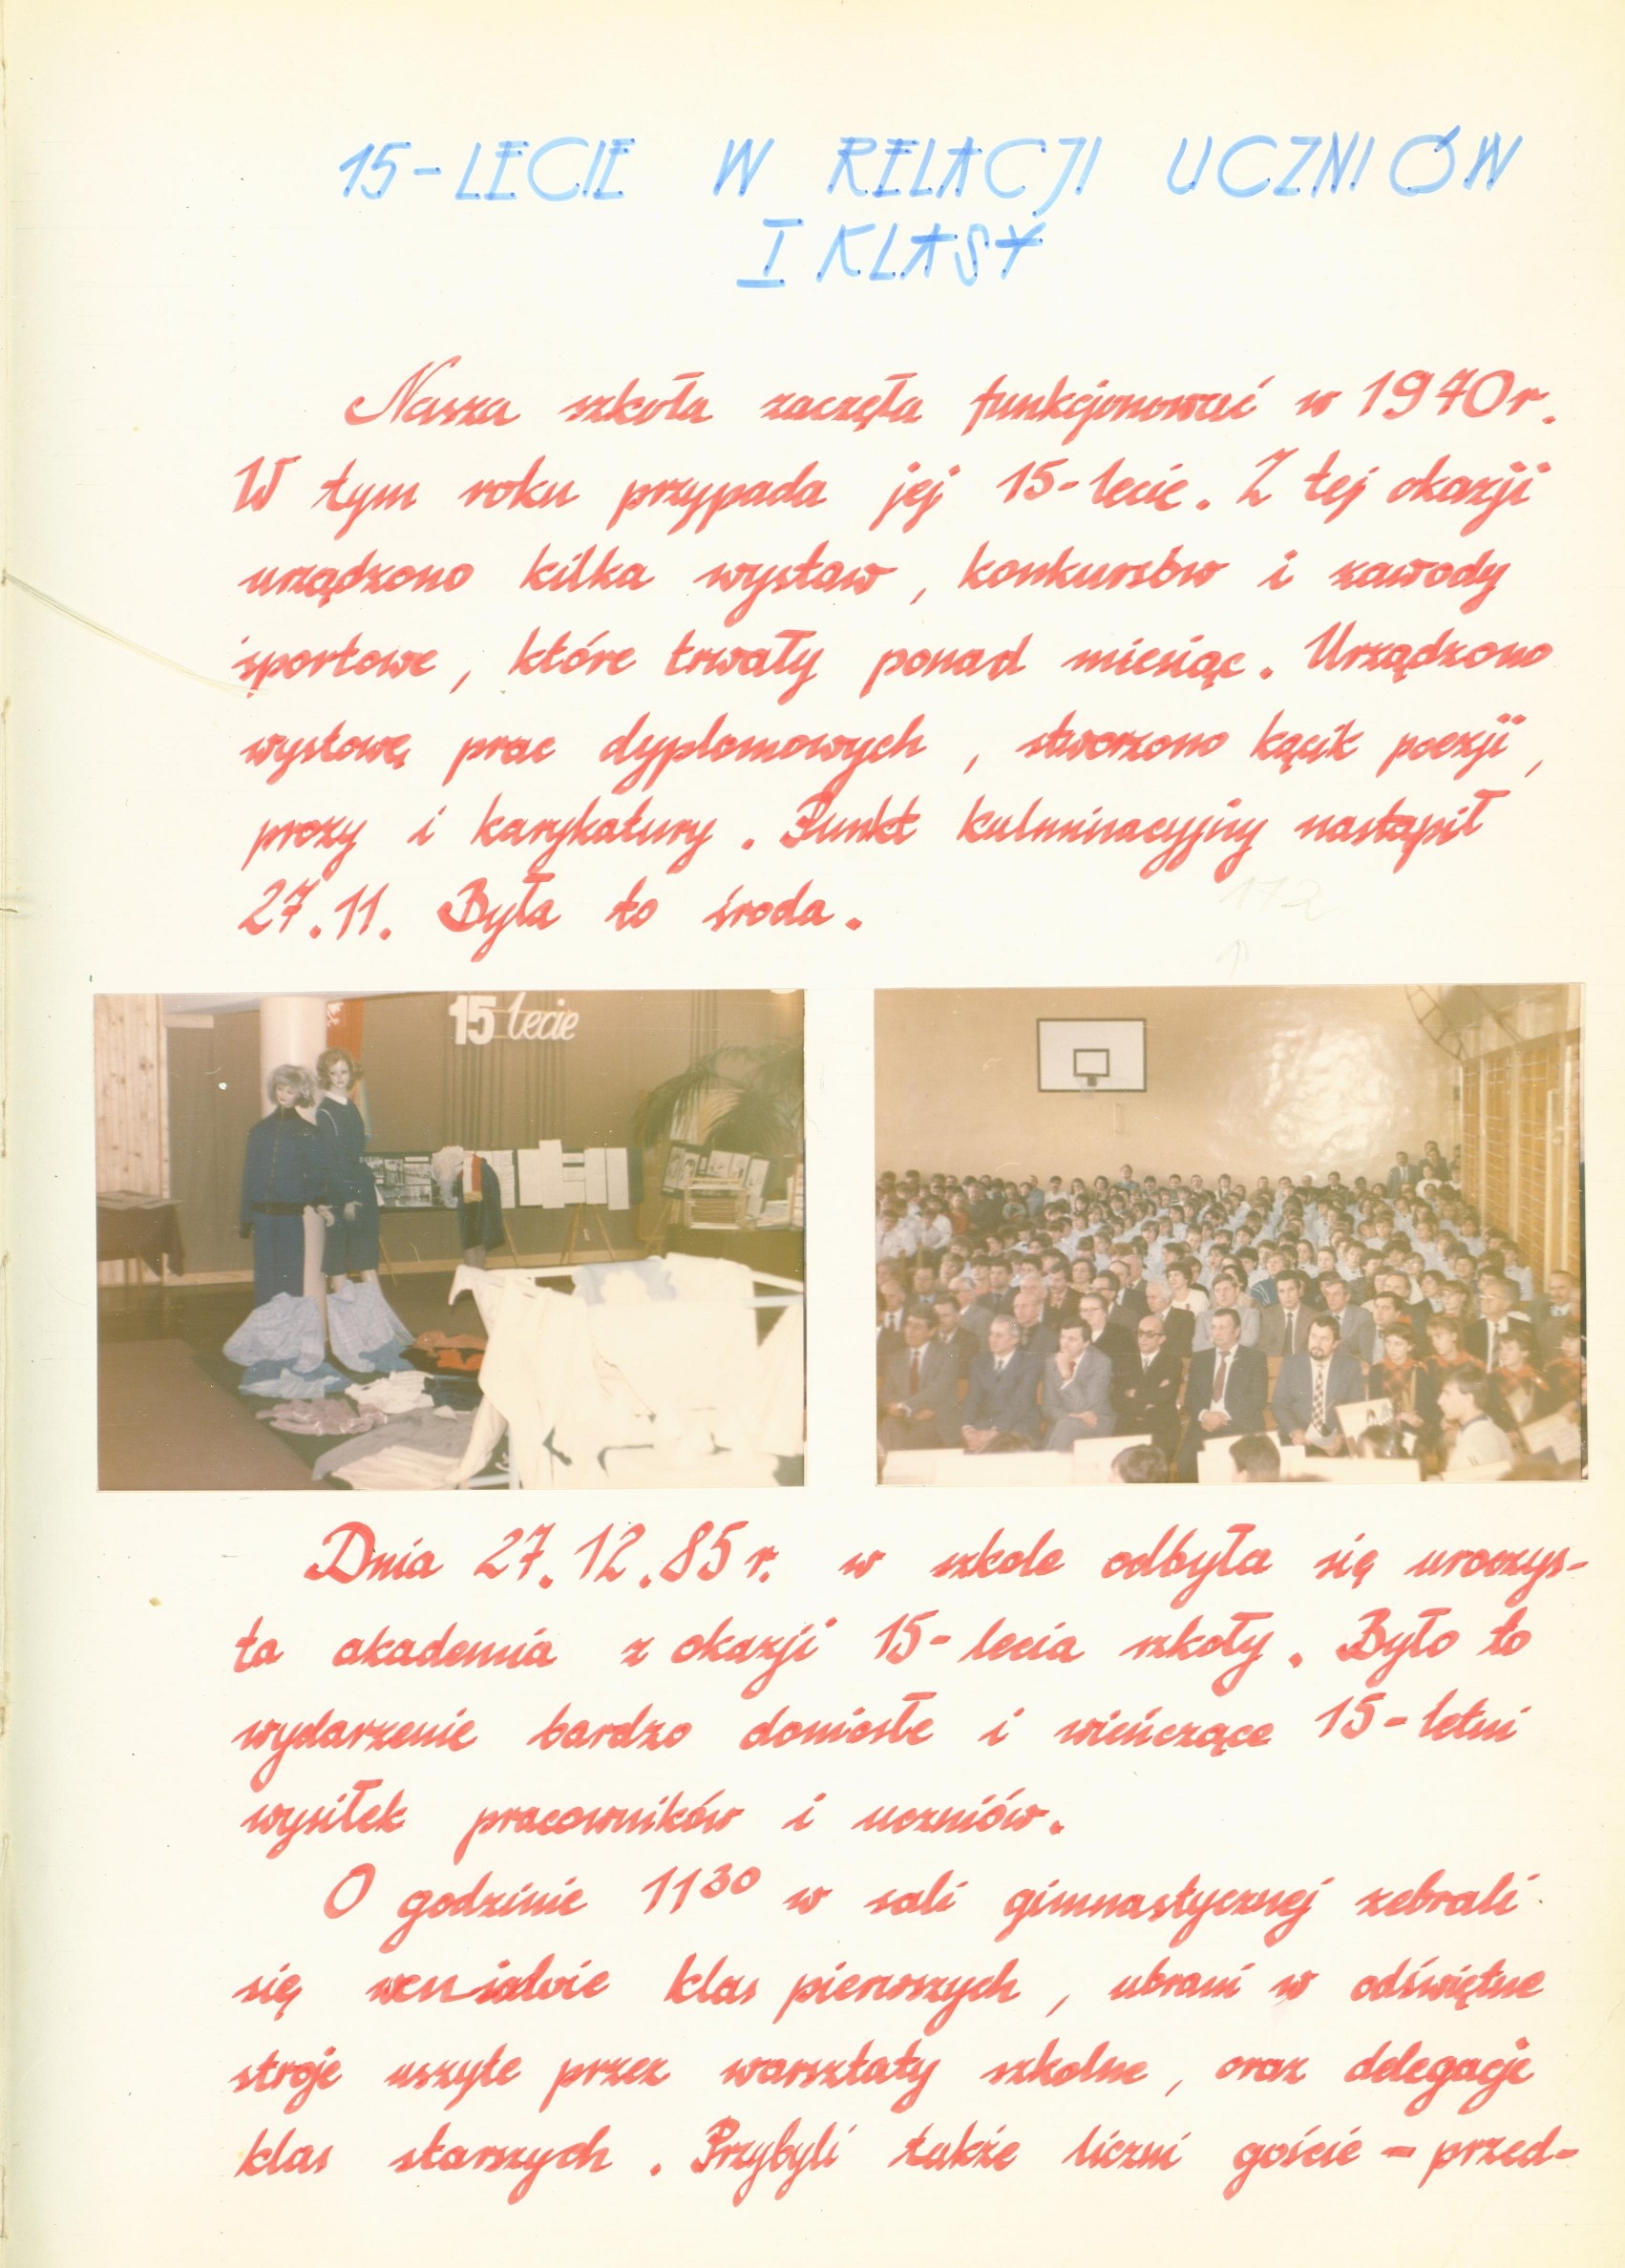 15-LECIE W RELACJI UCZNIÓW
I KLASY
Nasza szkoła zaczęła funkcjonować w 1970r.
W tym roku przypada jej 15-lecie. Z tej okazji
urządzono kilka wystaw, konkursów i zawody
sportowe, które trwały ponad miesiąc. Urządzono
wystawę prac dyplomowych, stworzono kącik poezji,
prozy i karykatury. Punkt kulminacyjny nastąpił
27.11. Była to środa.
172
15 lecie
Dnia 27.12.85r. w szkole odbyła się uroczys-
ta akademia z okazji 15-lecia szkoły. Było to
wydarzenie bardzo doniosłe i wieńczące 15-letni
wysiłek pracowników i uczniów.
O godzinie 11³⁰ w sali gimnastycznej zebrali
się klas pierwszych, ubrani w odświętne
stroje uszyte przez warsztaty szkolne, oraz delegacje
klas starszych. Przybyli także liczni goście - przed-